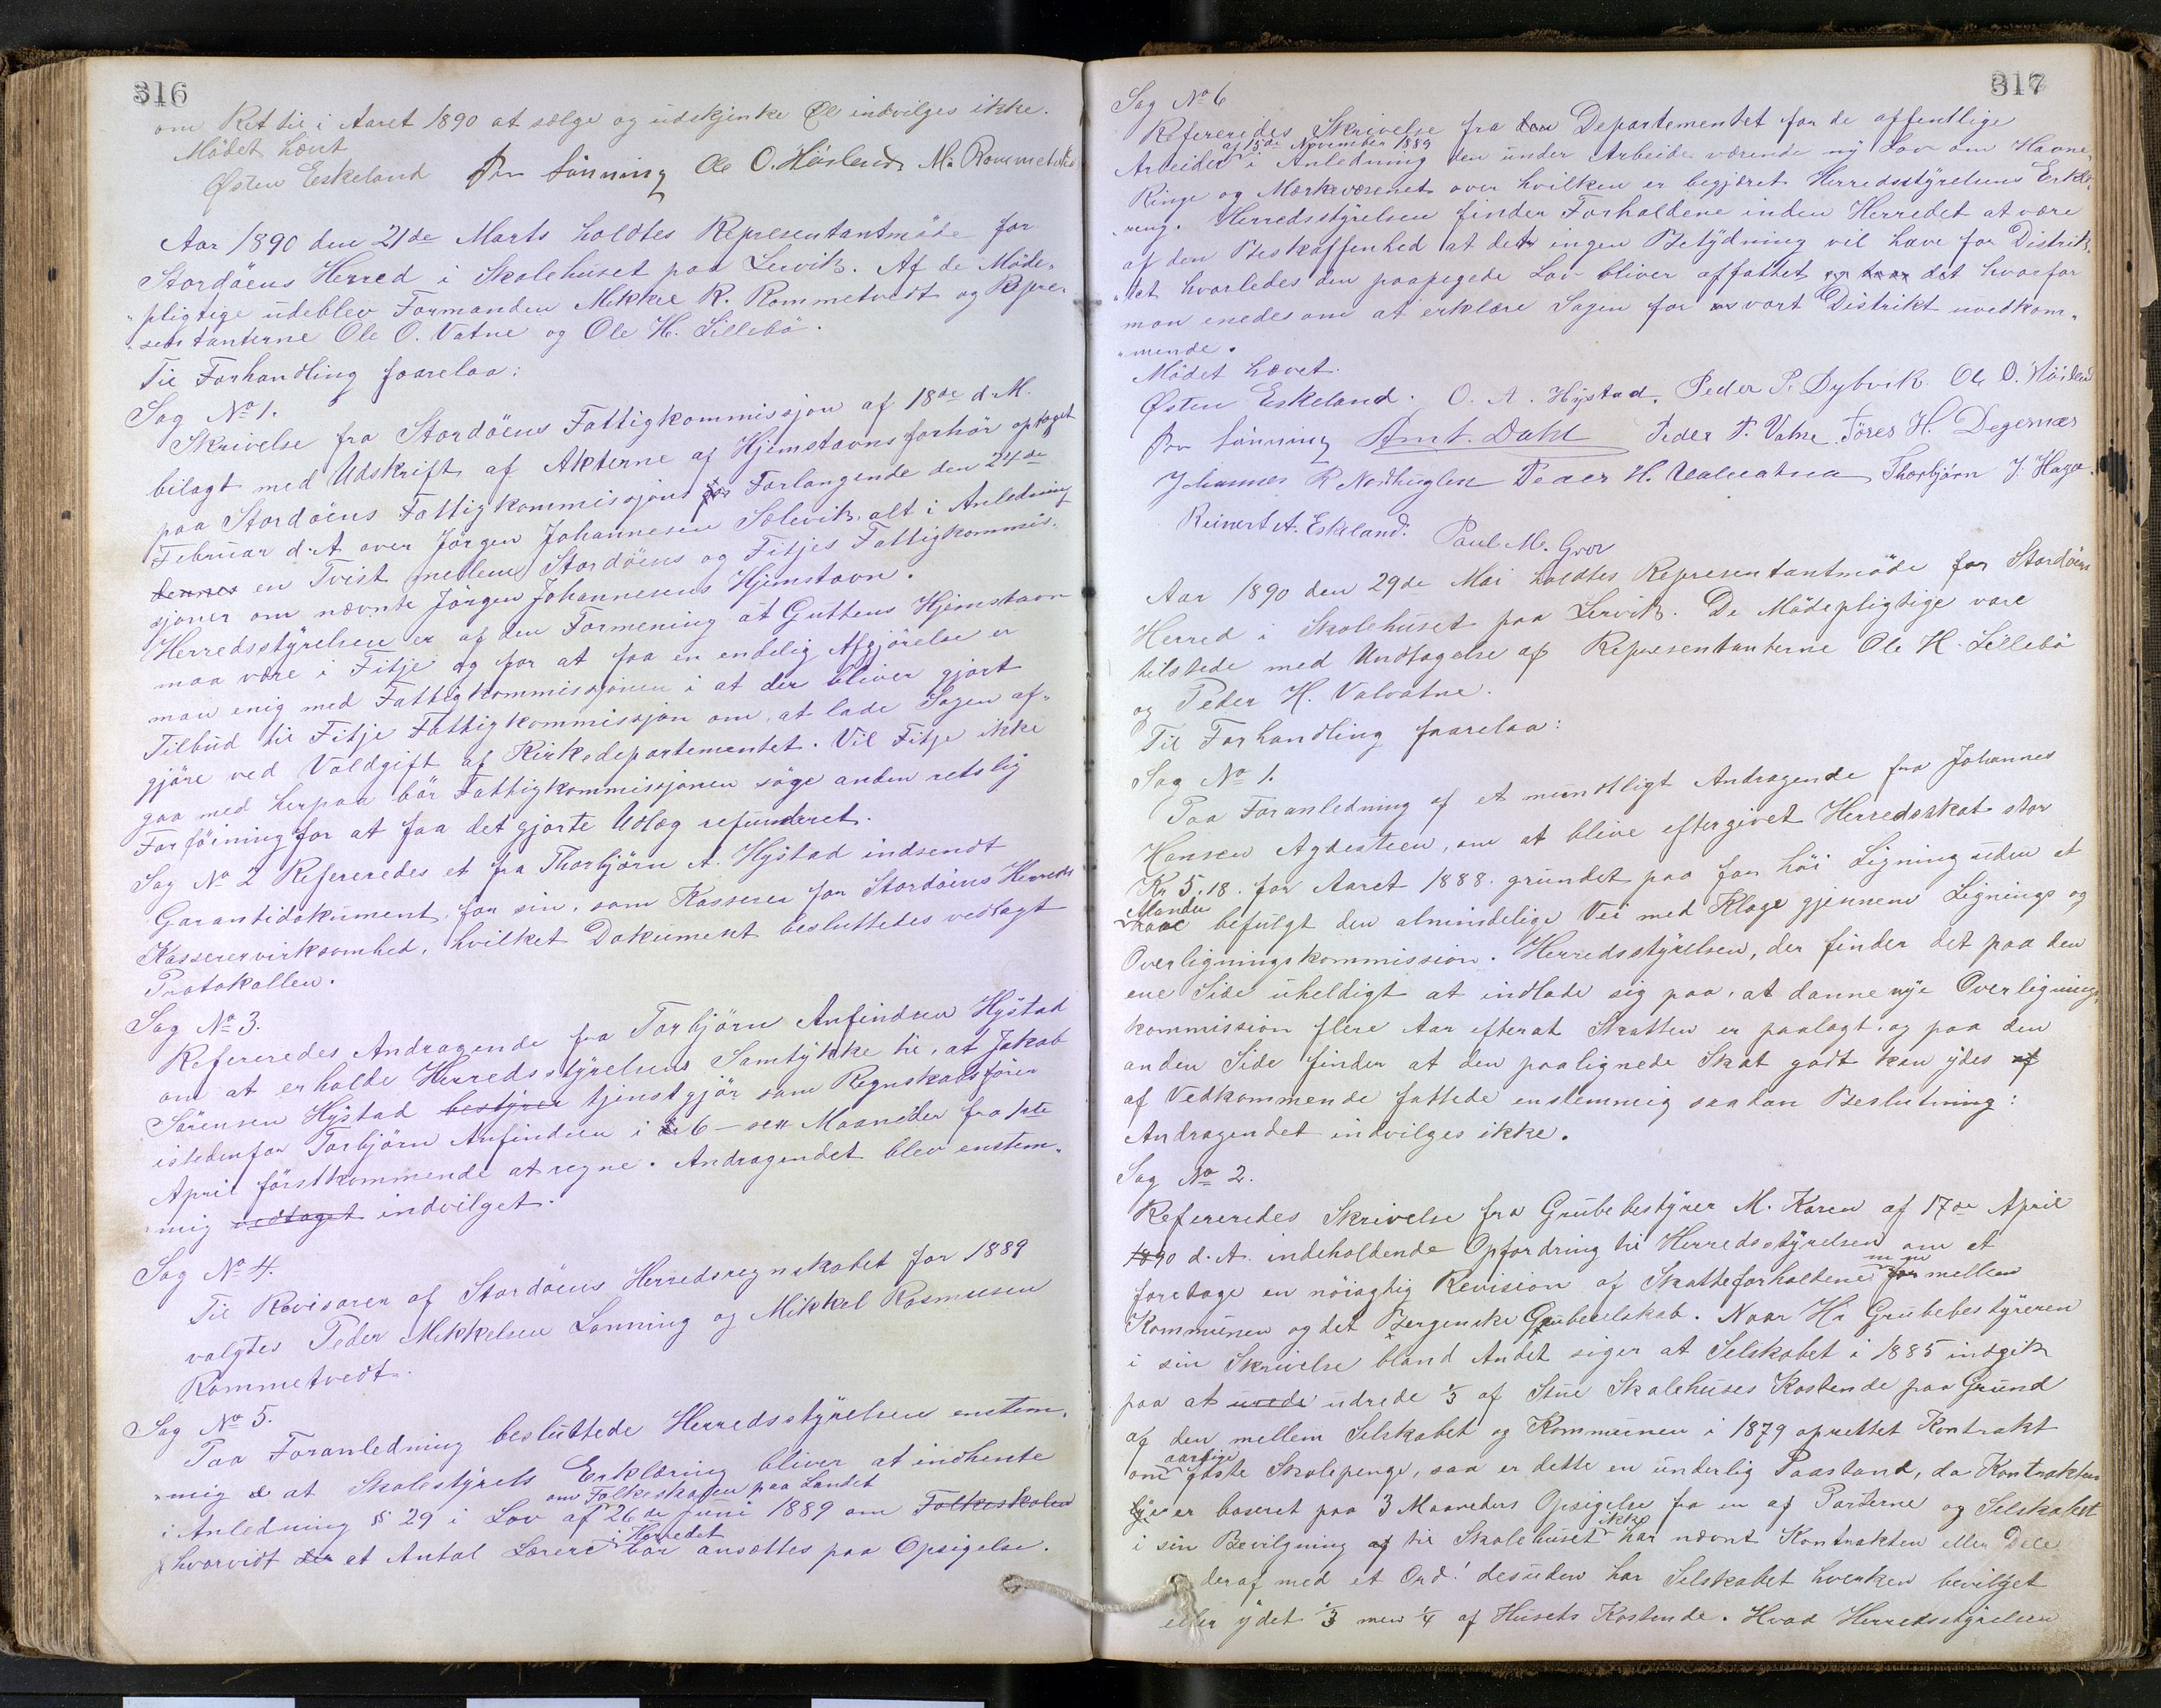 316
om Ret til i Aaret 1890 at sælge og udskjenke Øl indvilges ikke.
Mödet hævt
Østen Eskeland Per Lönning Ole O. Höiland M. Rommetvedt
Aar 1890 den 21de Marts holdtes Representantmöde for
Stordöens Herred i Skolehuset paa Lervik. Af de Möde-
pligtige udeblev Formanden Mikkel R. Rommetvedt og Repre-
sentanterne Ole O. Vatne og Ole H. Lillebö.
Til Forhandling foorelaa:
Sag No 1.
Skrivelse fra Stordöens Fattigkommissjon af 18de d. M.
bilagt med Udskrift af Akterne af Hjemstavnsforhör optaget
paa Stordöens Fattigkommissjons Forlangende den 24de
Februar d. A. over Jörgen Johannesen Sælevik, alt i Anledning
dennes en Tvist mellem Stordöens og Fitjes Fattigkommis-
sjoner om nævnte Jörgen Johannesens Hjemstavn.
Herredsstyrelsen er af den Formening at Guttens Hjemstavn
maa være i Fitje og for at faa en endelig Afgjörelse er
man enig med Fattigkommissjonen i at der bliver gjort
Tilbud til Fitje Fattigkommissjon om, at lade Sagen af-
gjöre ved Voldgift af Kirkedepartementet. Vil Fitje ikke
gaa med herpaa bör Fattigkommissjonen söge anden retslig
Forföining for at faa det gjorte Udlæg refunderet.
Sag No 2 Refereredes et fra Thorbjörn A. Hystad indsendt
Garantidokument, for sin, som Kasserer for Stordöens Herreds
Kasserervirksomhed, hvilket Dokument besluttedes vedlagt
Protokollen.
Sag No 3.
Refereredes Andragende fra Torbjörn Anfindsen Hystad
om at erholde Herredsstyrelsens Samtykke til, at Jakob
Sörensen Hystad bestyrer tjenstgjör som Regnskabsförer
istedenfor Torbjörn Anfindsen i 6 – sex Maaneder fra 1ste
April förstkommende at regne. Andragendet blev enstem-
mig vedtaget indvilget.
Sag No 4.
Til Revisorer af Stordöens Herredsregnskabet for 1889
valgtes Peder Mikkelsen Lönning og Mikkel Rasmussen
Rommetvedt.
Sag No 5.
Paa Foranledning besluttede Herredsstyrelsen enstem-
mig at Skolestyrets Erklæring bliver at indhente
om Folkeskolen paa Landet
i Anledning § 29 i Lov af 26de Juni 1889 om Folkeskolen
i Herredet
hvorvidt der et Antal Lærere bör ansættes paa Opsigelse.
317
Sag No 6
Refereredes Skrivelse fra den Departementet for de offentlige
af 15de November 1889
Arbeider i Anledning den under Arbeide værende ny Lov om Havne,
Ringe og Mærkevæsenet over hvilken er begjæret Herredsstyrelsens Erklæ-
ring. Herredsstyrelsen finder Forholdene inden Herredet at være
af den Beskaffenhed at det ingen Betydning vil have for Distrik-
tet hvorledes den paapegede Lov bliver affattet det hvorfor
man enedes om at erklære Sagen for vort Distrikt uvedkom-
mende.
Mödet hævet.
Østen Eskeland. O. A. Hystad. Peder P. Dybvik. Ole O. Höiland
Per Lönning Amt. Dahl Peder P. Vatne. Töres H. Degernæs
Johannes R Nordhuglen Peder H. Valvatna Thorbjörn J. Haga.
Reinert A. Eskeland. Paul M. Grov
Aar 1890 den 29de Mai holdtes Representantmöde for Stordöens
Herred i Skolehuset paa Lervik. De Mödepligtige vare
tilstede med Undtagelse af Representanterne Ole H. Lillebö
og Peder H. Valvatne.
Til Forhandling foorelaa:
Sag No 1.
Paa Foranledning af et mundtligt Andragende fra Johannes
Hansen Agdesteen, om at blive eftergivet Herredsskat stor
Kr 5,18. for Aaret 1888. grundet paa for höi Ligning uden at
Manden
have befulgt den almindelige Vei med Klage gjennem Lignings og
Overligningskommission. Herredsstyrelsen, der finder det paa den
ene Side uheldigt at indlade sig paa, at danne nye Overlignings-
kommission flere Aar efterat Skatten er paalagt, og paa den
anden Side finder at den paalignede Skat godt kan ydes af
af Vedkommende fattede enstemmig saadan Beslutning:
Andragendet indvilges ikke.
Sag No 2.
Refereredes Skrivelse fra Grubebestyrer M. Koren af 17de April
1890 d. A. indeholdende Opfordring til Herredsstyrelsen om at
foretage en nöiagtig Revision af Skatteforholdene for mellem
Kommunen og det Bergenske Grubeselskab. Naar Hr Grubebestyreren
i sin Skrivelse bland Andet siger at Selskabet i 1885 indgik
paa at urede udrede 1/3 af Stue Skolehuses Kostende paa Grund
af den mellem Selskabet og Kommunen i 1879 oprettet Kontrakt
aarlige
om Skolepenge, saa er dette en underlig Paastand, da Kontrakten
er baseret paa 3 Maaneders Opsigelse fra en af Parterne og Selskabet
ikke
i sin Bevilgning af til Skolehuset har nævnt Kontrakten eller Dele
deraf med et Ord! desuden har Selskabet hverken bevilget
eller ydet 1/3 men 1/4 af Husets Kostende. Hvad Herredsstyrelsen